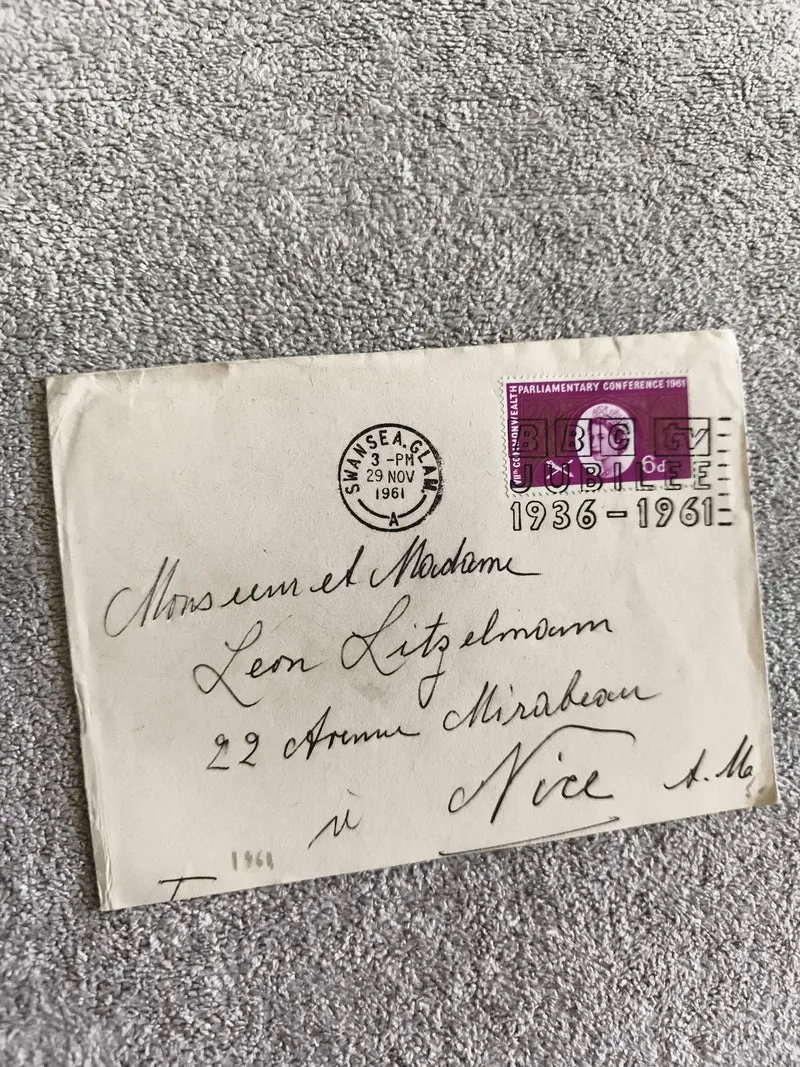 VIIth COMMONWEALTH
PARLIAMENTARY CONFERENCE 1961
6d
BBC tv
JUBILEE
1936-1961
SWANSEA. GLAM.
3 -PM
29 NOV
1961
A
Monsieur et Madame
Léon Litzelmann
22 Avenue Mirabeau
à Nice A.M
1961